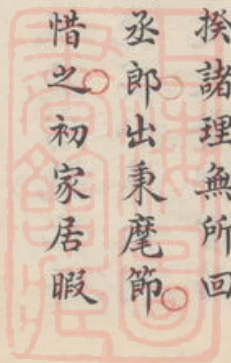 揆諸理無所回
丞郎出秉麾節
惜之初家居暇